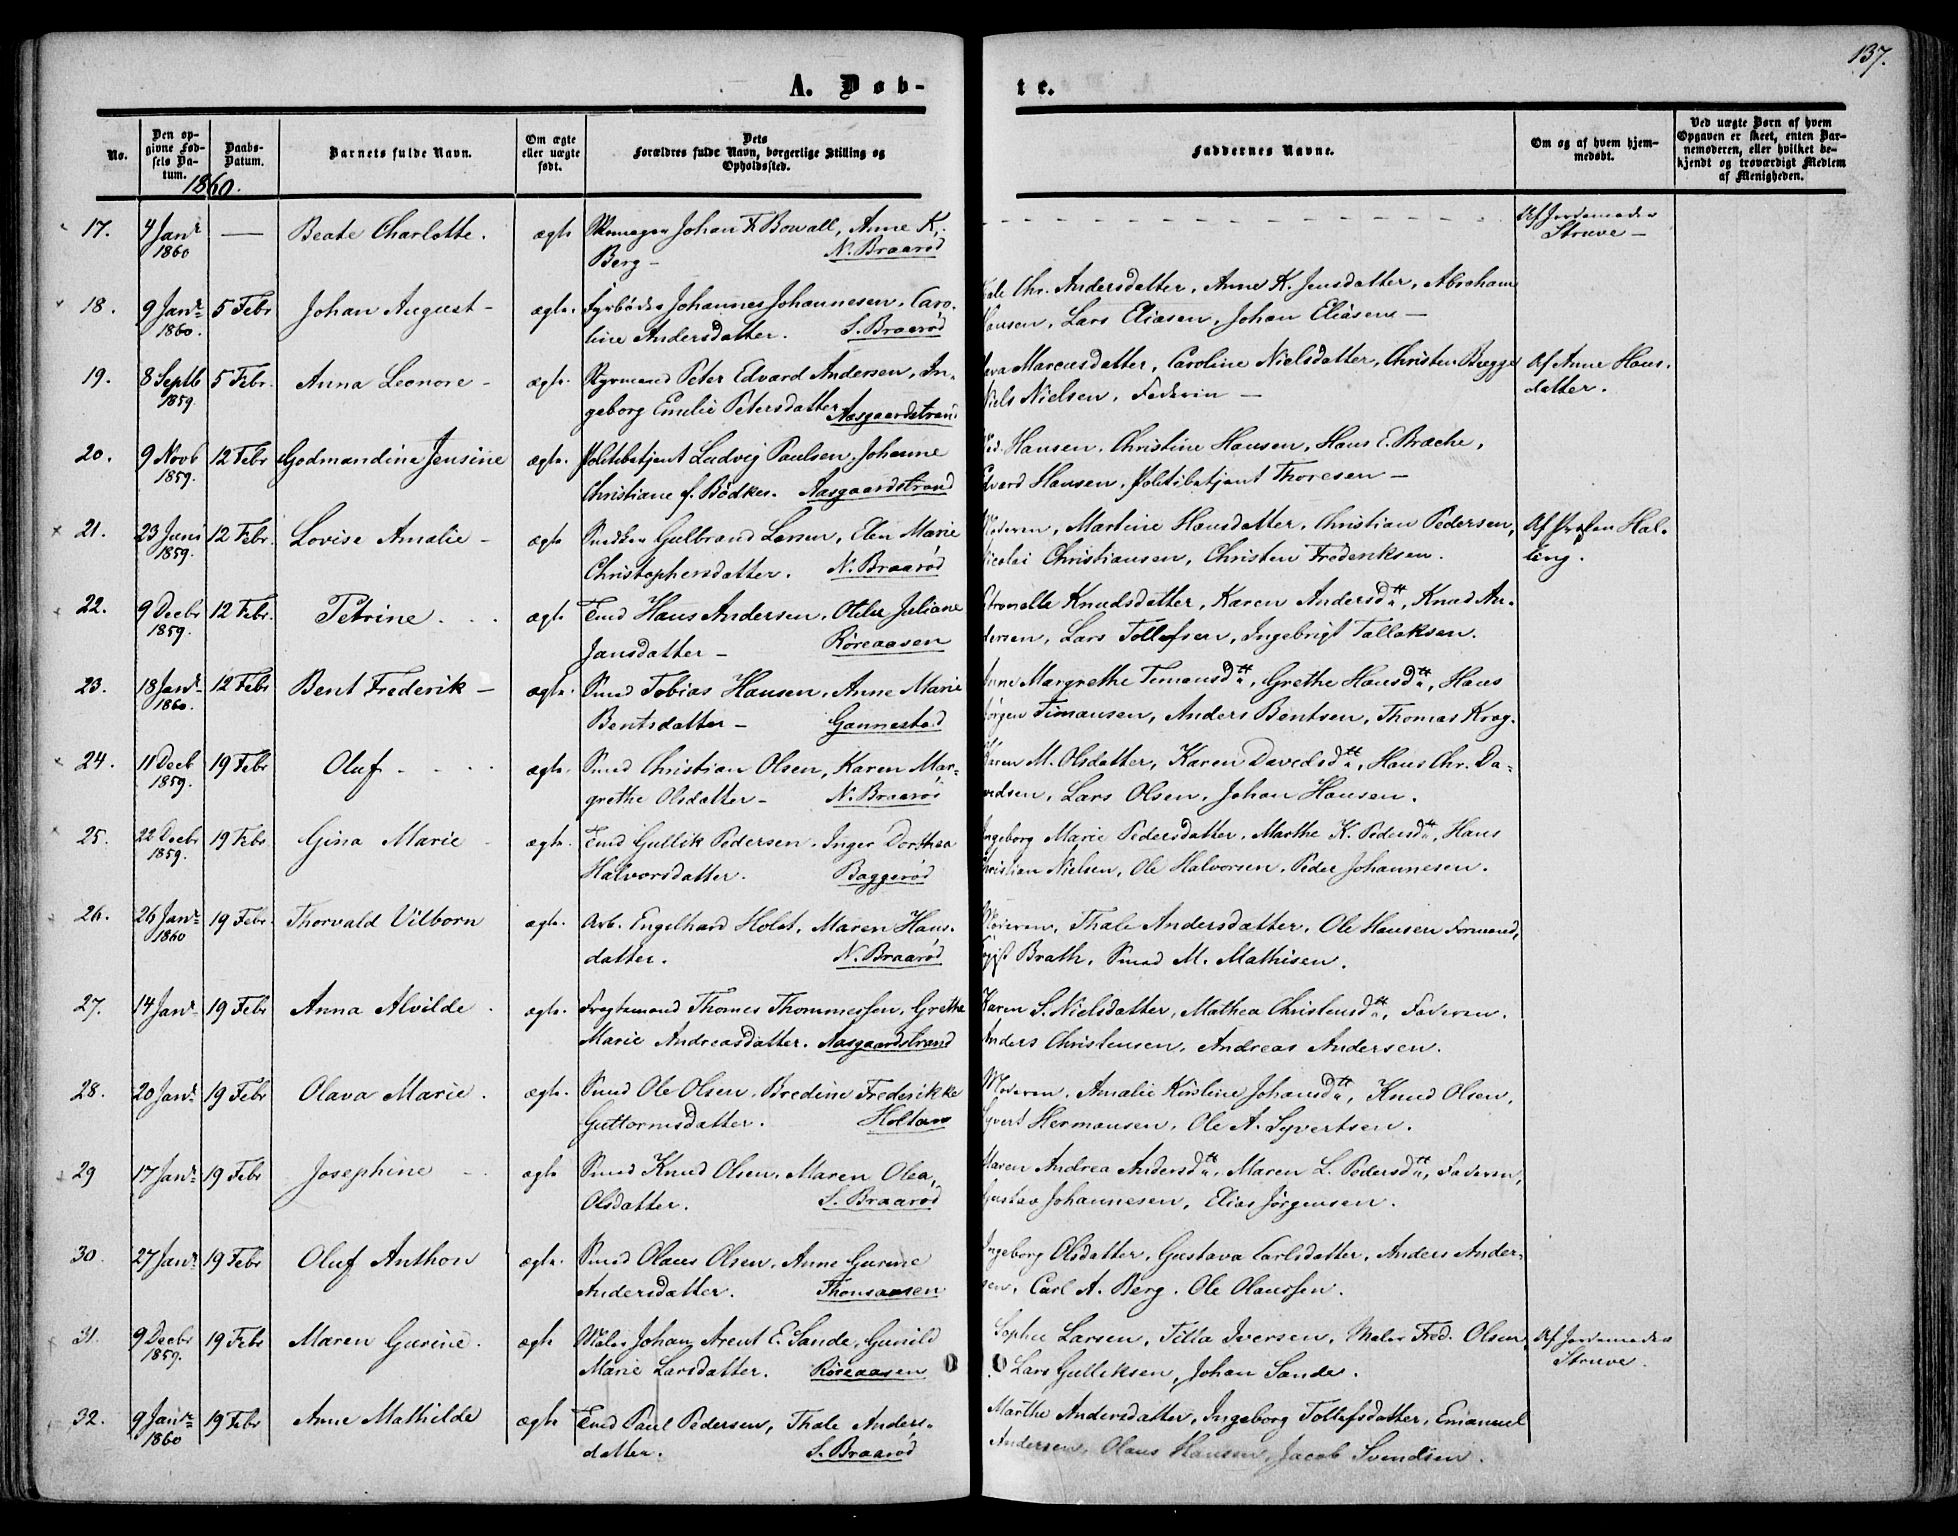 137.
A. Døb-
te.
No.
Den op-
givne Fød-
sels Da-
tum.
Daabs-
Datum.
Barnets fulde Navn.
Om ægte
eller uægte
født.
Dets
Forældres fulde Navn, borgerlige Stilling og
Opholdssted.
Faddernes Navne.
Om og af hvem hjem-
medøbt.
Ved uægte Børn af hvem
Opgaven er skeet, enten Bar-
nemoderen, eller hvilket be-
kjendt og troværdigt Medlem
af Menigheden.
1860.
17. 4 Janr — Beate Charlotte. ægte Johan F Bowall, Anne K. Af Jordemoder
1860 Berg — N. Braarød Struve —
18. 9 Janr 5 Febr Johan August — ægte. Fyrbøder Johannes Johannesen, Caro- Chr. Andersdatter, Anne K. Jensdatter, Abraham
1860. line Andersdatter. S. Braarød Hansen, Lars Eliasen, Johan Eliasen —
19. 8 Septb 5 Febr. Anna Leonore — ægte. Styrmand Peter Edvard Andersen, In- Marcusdatter, Caroline Nielsdatter, Christen Bugge Af Anne Hans-
1859. geborg Emilie Petersdatter Aasgaardstrand Niels Nielsen, Faderen — datter.
20. 9 Novb 12 Febr Godmandine Jensine ægte. Politibetjent Ludvig Paulsen, Johanne Hansen, Christine Hansen, Hans E. Brache,
1859. Christiane f. Bödker. Aasgaardstrand Edvard Hansen, Politibetjent Thoresen —
21. 23 Juni 12 Febr. Lovise Amalie — ægte Snedker Gulbrand Larsen, Elen Marie Moderen, Martine Hansdatter, Christian Pedersen, Af Præsten Hal-
1859. Christophersdatter. N. Braarød Nicolai Christiansen, Christen Frederiksen. ling.
22. 9 Decbr 12 Febr. Petrine ægte Tend Hans Andersen, Otilie Juliane Petronelle Knudsdatter, Karen Andersdtt, Knud An-
1859. Jansdatter — Röreaasen dersen, Lars Tollefsen, Ingebrigt Tallaksen.
23. 18 Janr 12 Febr Bent Frederik — ægte. Smed Tobias Hansen, Anne Marie Anne Margrethe Timansdtt, Grethe Hansdtt, Hans
1860. Bentsdatter — Gannestad Jørgen Timansen, Anders Bentsen, Thomas Krag.
24. 11 Decb 19 Febr Oluf ægte. Smed Christian Olsen, Karen Mar- Karen M. Olsdatter, Karen Davidsdtt, Hans Chr. Da-
1859. grethe Olsdatter — N. Braarød vidsen, Lars Olsen, Johan Hansen.
25. 22 Decbr 19 Febr Gina Marie ægte. Tend Gullik Pedersen, Inger Dorthea Ingeborg Marie Pedersdatter, Marthe K. Pedersdtt, Hans
1859. Halvorsdatter. Baggerød Christian Nielsen, Ole Halvorsen, Peder Johannesen.
26. 26 Janr 19 Febr. Thorvald Vilborn ægte. Arb. Engelhard Holst, Maren Hans- Moderen, Thale Andersdatter, Ole Hansen Formand,
1860 datter. N. Braarød Brath, Smed M. Mathisen.
27. 14 Janr 19 Febr Anna Alvilde ægte. Fragtemand Thomes Thommessen, Grethe Karen S. Nielsdatter, Mathea Christensdtt, Faderen.
Marie Andreasdatter. Aasgaardstrand Anders Christensen, Andreas Andersen.
28. 20 Janr 19 Febr Olava Marie. ægte. Smed Ole Olsen, Bredine Frederikke Moderen, Amalie Kirstine Johansdtt, Knud Olsen,
Guttormsdatter. Holtan Syvert Hermansen, Ole A. Syvertsen.
29 17 Janr 19 Febr Josephine ægte Smed Knud Olsen, Maren Olea, Maren Andrea Andersdtt, Maren L. Pedersdtt, Faderen,
Olsdatter. S. Braarød Gustav Johannesen, Elias Jørgensen.
30. 27 Janr 19 Febr Oluf Anthon ægte. Smed Olaus Olsen, Anne Gurine Ingeborg Olsdatter, Gustava Carlsdatter, Anders Ander-
Andersdatter. Thonsaasen sen, Carl A. Berg. Ole Olaussen.
31. 9 Decbr 19 Febr Maren Gurine. ægte Maler Johan Arent E. Sande, Gunild Sophie Larsen, Tilla Iversen, Maler Fred. Olsen, Af Jordemoder
1859. Marie Larsdatter. Röreaasen Lars Gulliksen, Johan Sande. Struve.
32. 9 Janr 19 Febr Anne Mathilde ægte Tend Paul Pedersen, Thale Anders- Marthe Andersdatter, Ingeborg Tollefsdatter, Emanuel
1860 datter. S. Braarød Andersen, Olaus Hansen, Jacob Svendsen.